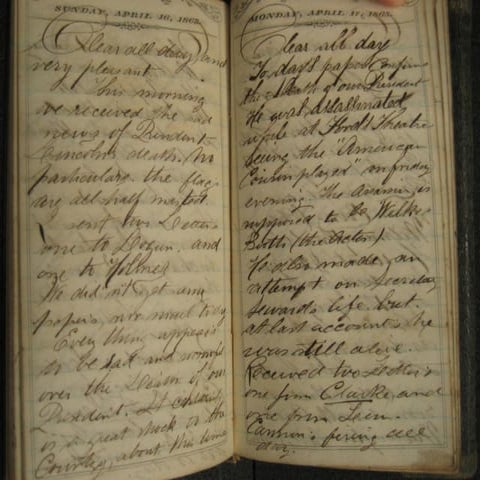 SUNDAY, APRIL 16, 1865.
Clear all day and
very pleasant
This morning
we received the sad
news of President
Lincolns death. No
particulars. the flags
are all half mast.
sent two Letters
one to Logan. and
one to Holmes
We did n't get any
papers, nor mail to day
Every thing appears
to be sad and
over the Death of our
President. It
is a great shock to the
Country, about this time
MONDAY, APRIL 17, 1865.
Clear all day
To day's paper Confirms
the Death of our President
He was Assassinated
while at Fords Theatre
seeing the "American
Cousin played" on friday
evening. The Assassin is
supposed to be Wilkes
Booth (the Actor)
He also made, an
attempt on Secretary
Sewards life. but
at last accounts he
was still alive.
Received two Letters
one from Clarke, and
one from
Cannon's firing all
day.